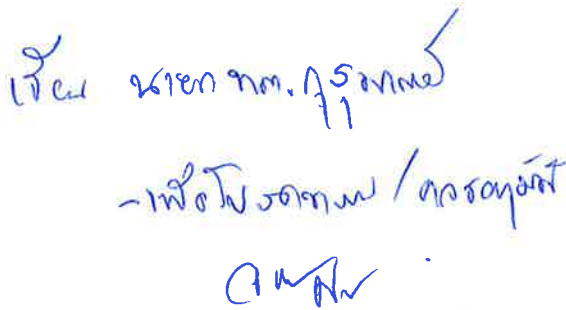 เรียน นายก ทต.กุสุมาลย์
-เพื่อโปรดทราบ / ควรอนุมัติ